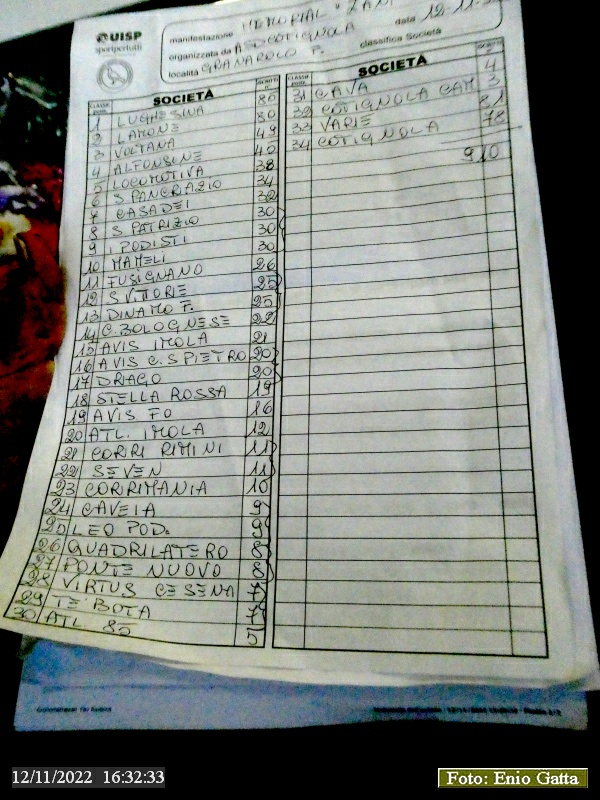 UISP
sportpertutti
manifestazione MEMORIAL "ZANI
organizzata da ASD COTIGNOLA data 12-11-
località GRANAROLO F. classifica Società
CLASSIF. SOCIETÀ ISCRITTI
1 LUGHESINA 85
2 LAMONE 80
3 VOLTANA 49
4 ALFONSINE 40
5 LOCOMOTIVA 38
6 S PANCRAZIO 34
7 CASADEI 32
8 S PATRIZIO 30
9 I PODISTI 30
10 MAMELI 30
11 FUSIGNANO 26
12 S VITTORE 25
13 DINAMO F. 25
14 C. BOLOGNESE 22
15 AVIS IMOLA 21
16 AVIS C. S PIETRO 20
17 DRAGO 20
18 STELLA ROSSA 19
19 AVIS FO 16
20 ATL. IMOLA 12
21 CORRI RIMINI 11
22 SEVEN 11
23 CORRIMANIA 10
24 CAVEIA 9
25 LEO POD. 9
26 QUADRILATERO 8
27 PONTE NUOVO 8
28 VIRTUS CESENA 7
29 TE BOTA 7
30 ATL 85 5
CLASSIF. SOCIETÀ
31 CAVA 4
32 COTIGNOLA CAM 3
33 VARIE 81
34 COTIGNOLA 78
910
12/11/2022 16:32:33
Foto: Enio Gatta